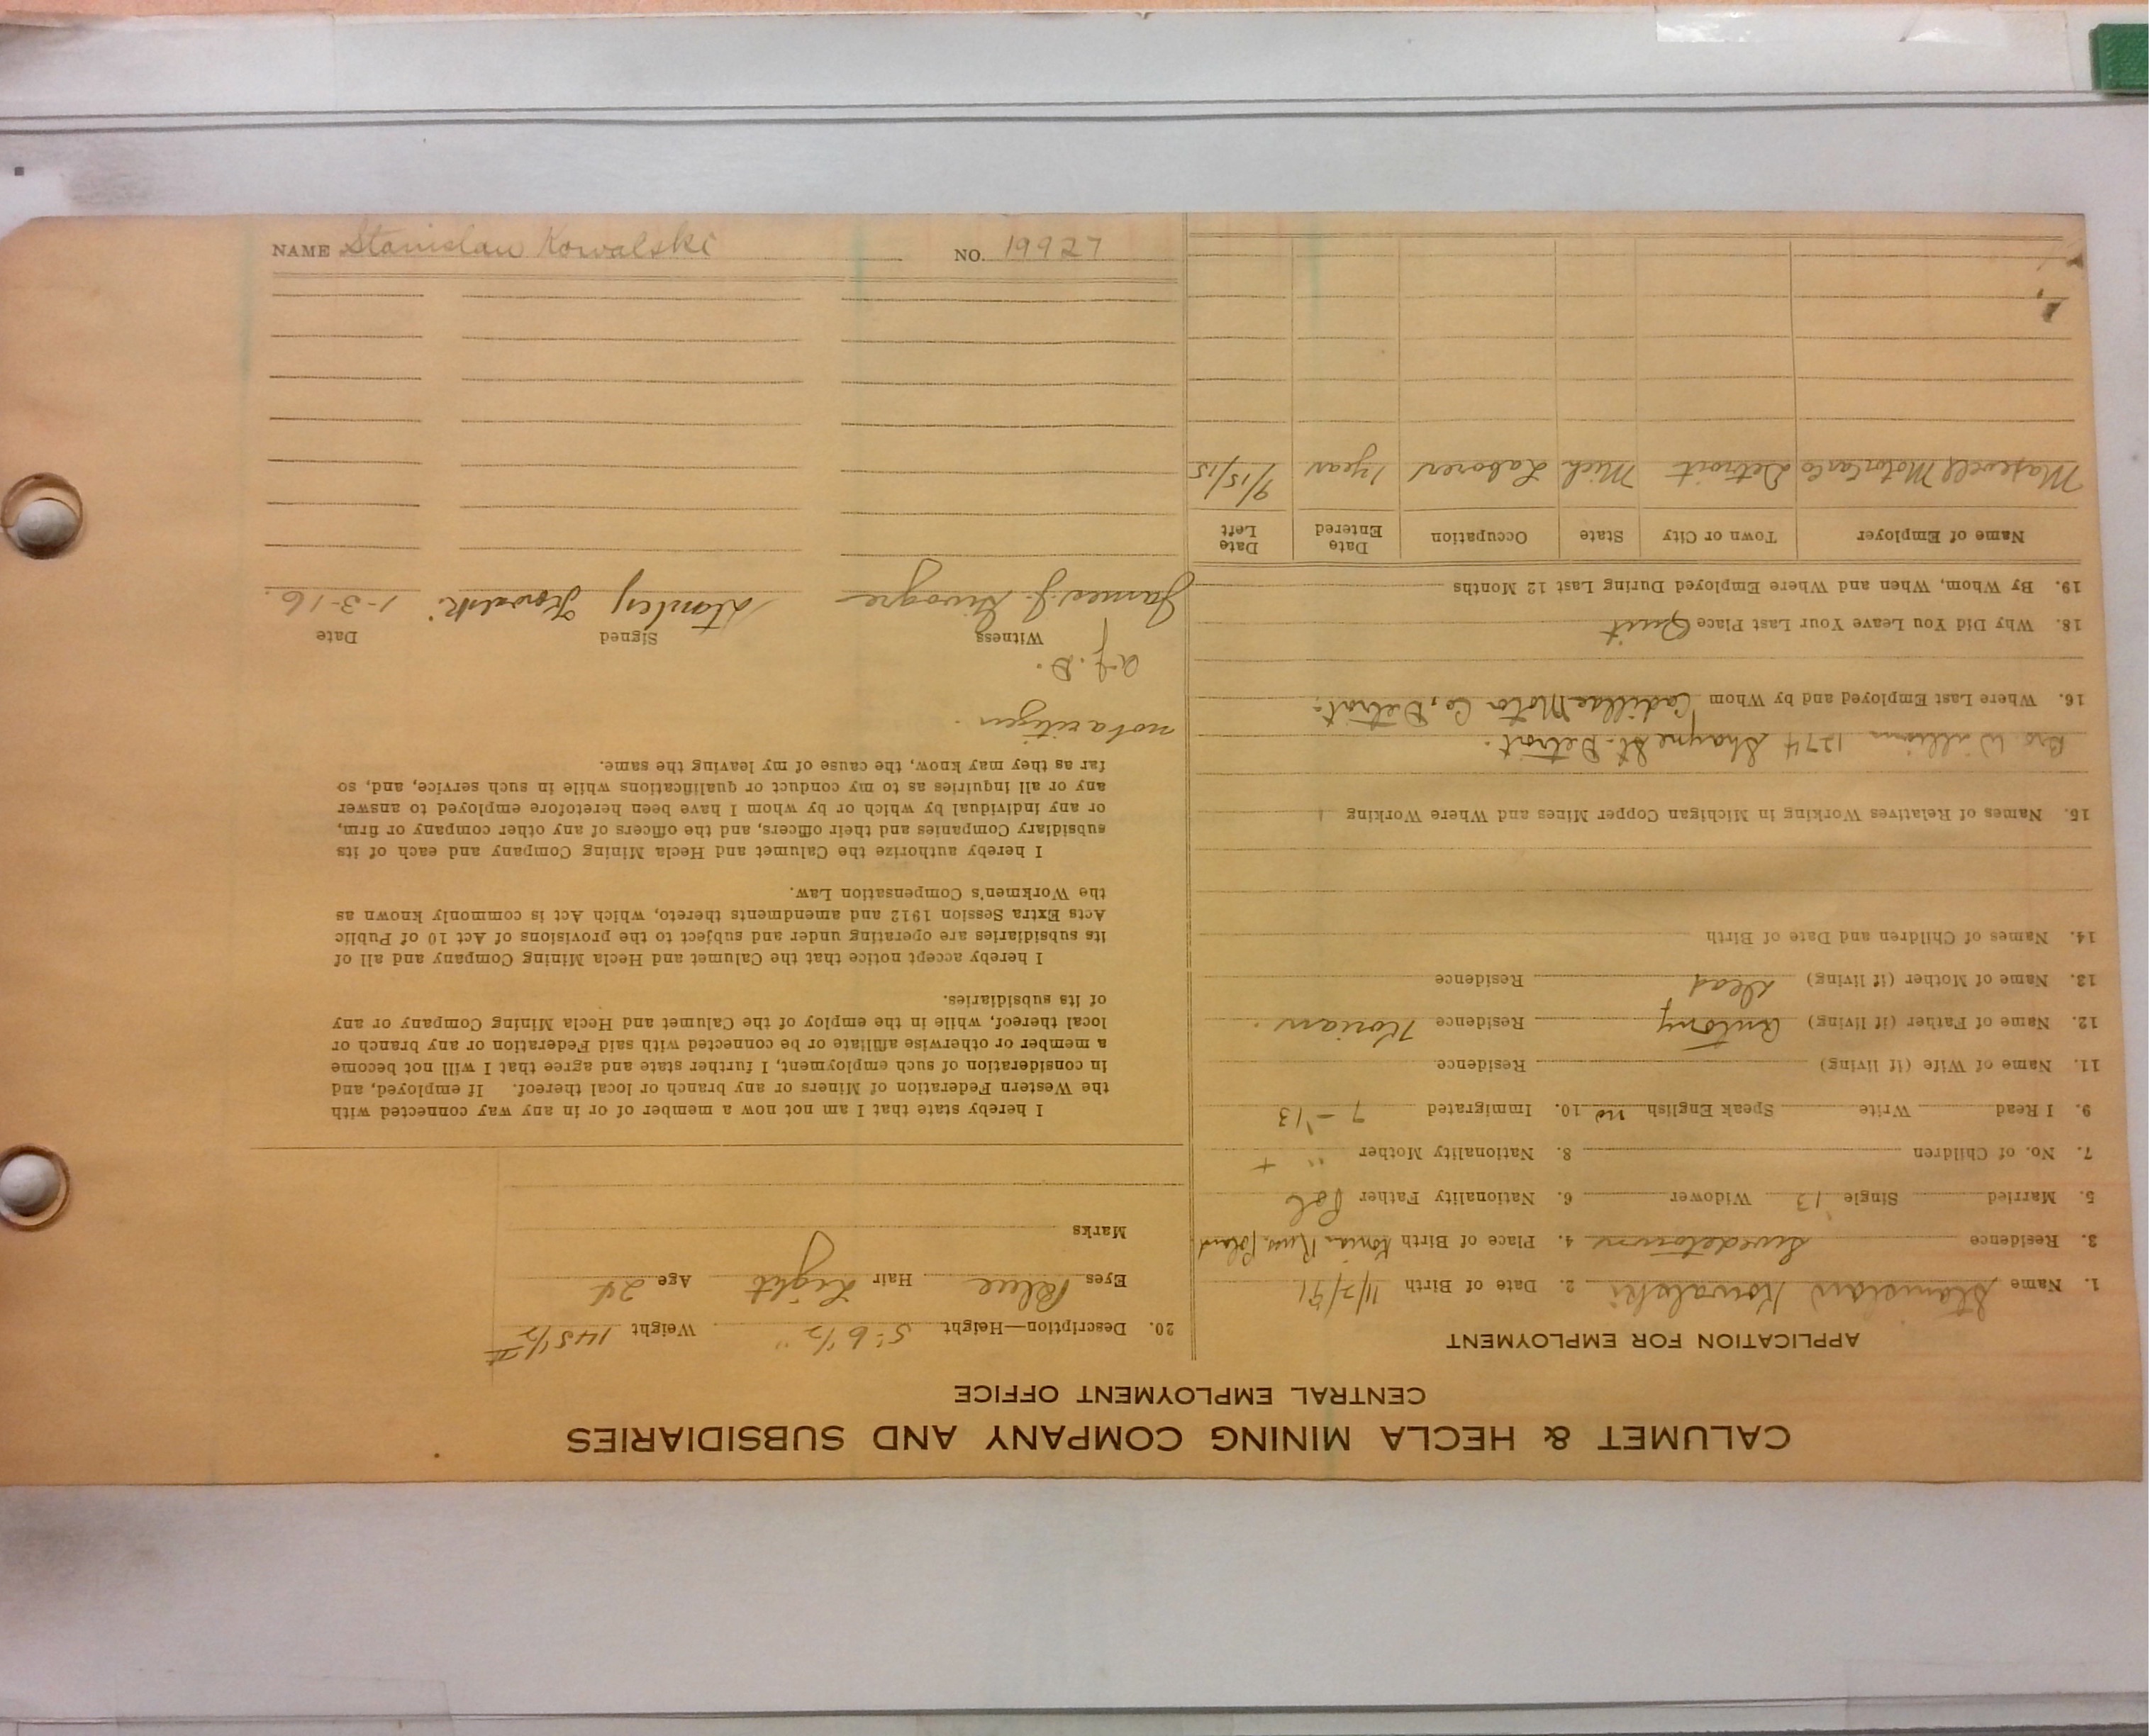 CALUMET & HECLA MINING COMPANY AND SUBSIDIARIES
CENTRAL EMPLOYMENT OFFICE
APPLICATION FOR EMPLOYMENT
1. Name Stanislaw Kowalski 2. Date of Birth 11/2/91
3. Residence Swedetown 4. Place of Birth Konian Russ. Poland
5. Married Single "13 Widower 6. Nationality Father Pol
7. No. of Children 8. Nationality Mother " +
9. I Read Write Speak English no 10. Immigrated 7-'13
11. Name of Wife (if living) Residence
12. Name of Father (if living) Antony Residence Konian.
13. Name of Mother (if living) Dead Residence
14. Names of Children and Date of Birth
15. Names of Relatives Working in Michigan Copper Mines and Where Working
Bro William 1274 St. Detroit.
16. Where Last Employed and by Whom Cadillac Motor Co, Detroit.
18. Why Did You Leave Your Last Place Quit
19. By Whom, When and Where Employed During Last 12 Months
Name of Employer Town or City State Occupation Date Entered Date Left
Maxwell Motor Car Co Detroit Mich Laborer 1 year 9/15/15
20. Description—Height 5' 6 1/2" Weight 145 1/2 #
Eyes Blue Hair Light Age 24
Marks
I hereby state that I am not now a member of or in any way connected with
the Western Federation of Miners or any branch or local thereof. If employed, and
in consideration of such employment, I further state and agree that I will not become
a member or otherwise affiliate or be connected with said Federation or any branch or
local thereof, while in the employ of the Calumet and Hecla Mining Company or any
of its subsidiaries.
I hereby accept notice that the Calumet and Hecla Mining Company and all of
its subsidiaries are operating under and subject to the provisions of Act 10 of Public
Acts Extra Session 1912 and amendments thereto, which Act is commonly known as
the Workmen's Compensation Law.
I hereby authorize the Calumet and Hecla Mining Company and each of its
subsidiary Companies and their officers, and the officers of any other company or firm,
or any individual by which or by whom I have been heretofore employed to answer
any or all inquiries as to my conduct or qualifications while in such service, and, so
far as they may know, the cause of my leaving the same.
not a citizen.
Witness Signed Date
James J. Stanley Kowalski 1-3-16.
NAME Stanislaw Kowalski NO. 19927